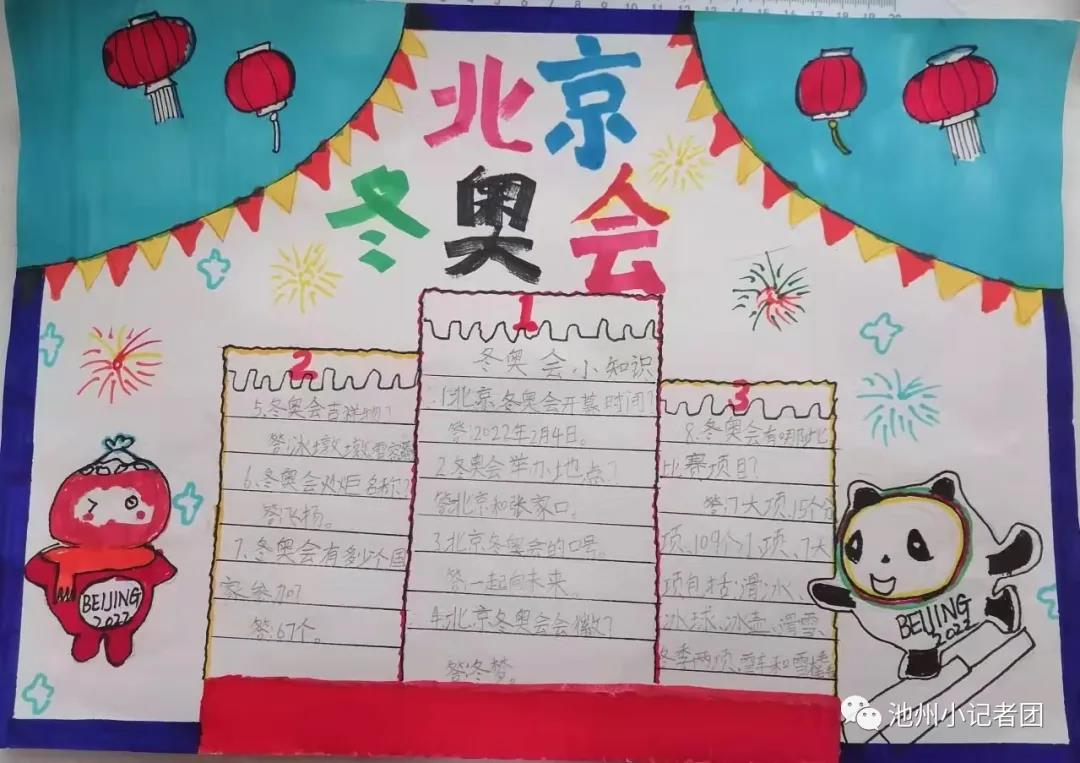 北京
冬奥会
1
冬奥会小知识
1.北京冬奥会开幕时间?
答:2022年2月4日。
2.冬奥会举办地点?
答北京和张家口。
3.北京冬奥会的口号。
答一起向未来。
4.北京冬奥会会徽?
答:冬梦。
2
5.冬奥会吉祥物?
答:冰墩墩雪容融
6.冬奥会火炬名称?
答飞扬。
7.冬奥会有多少个国
家参加?
答:67个。
3
8.冬奥会有哪些
比赛项目?
答:7大项、15个分
项、109个小项、7大
项包括:滑冰、
冰球、冰壶、滑雪、
冬季两项、雪车和雪橇。
BEIJING
2022
BEIJING
2022
池州小记者团